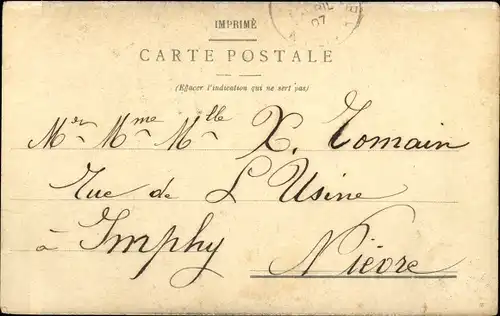 IMPRIMÉ
07
CARTE POSTALE
(Effacer l'indication qui ne sert pas)
Mr Mme Mlle X. Tomain
Rue de L'Usine
à Imphy Nièvre